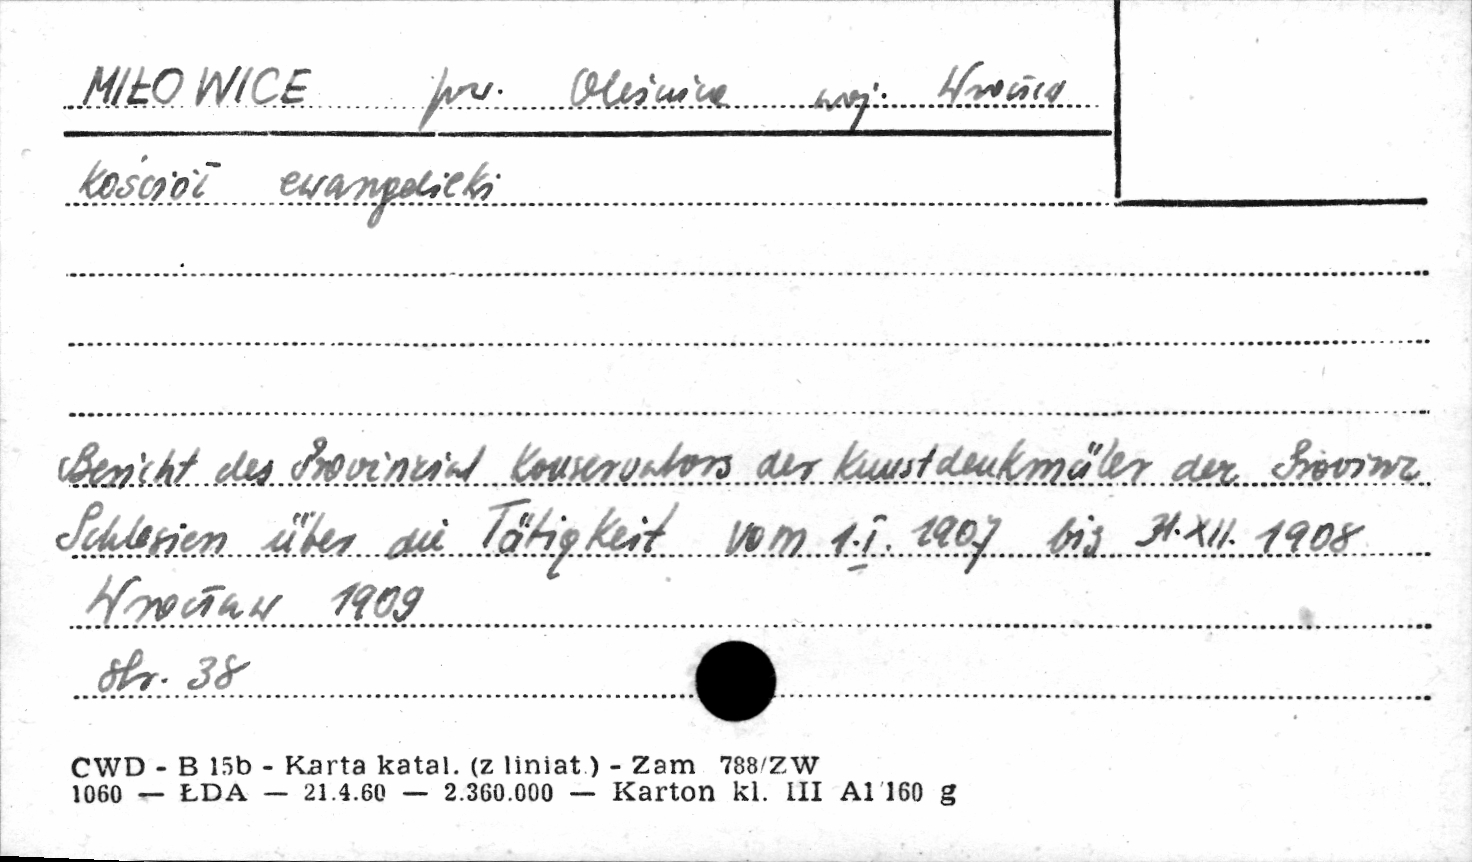 MIŁOWICE pow. Oleśnica woj. Wrocław
kościół ewangelicki
Bericht des Provinzial Konservators der Kunstdenkmäler der Provinz
Schlesien über die Tätigkeit vom 1.I. 1907 bis 31.XII. 1908
Wrocław 1909
str. 38
CWD - B 15b - Karta katal. (z liniat.) - Zam 788/ZW
1060 — ŁDA — 21.4.60 — 2.360.000 — Karton kl. III A1 160 g